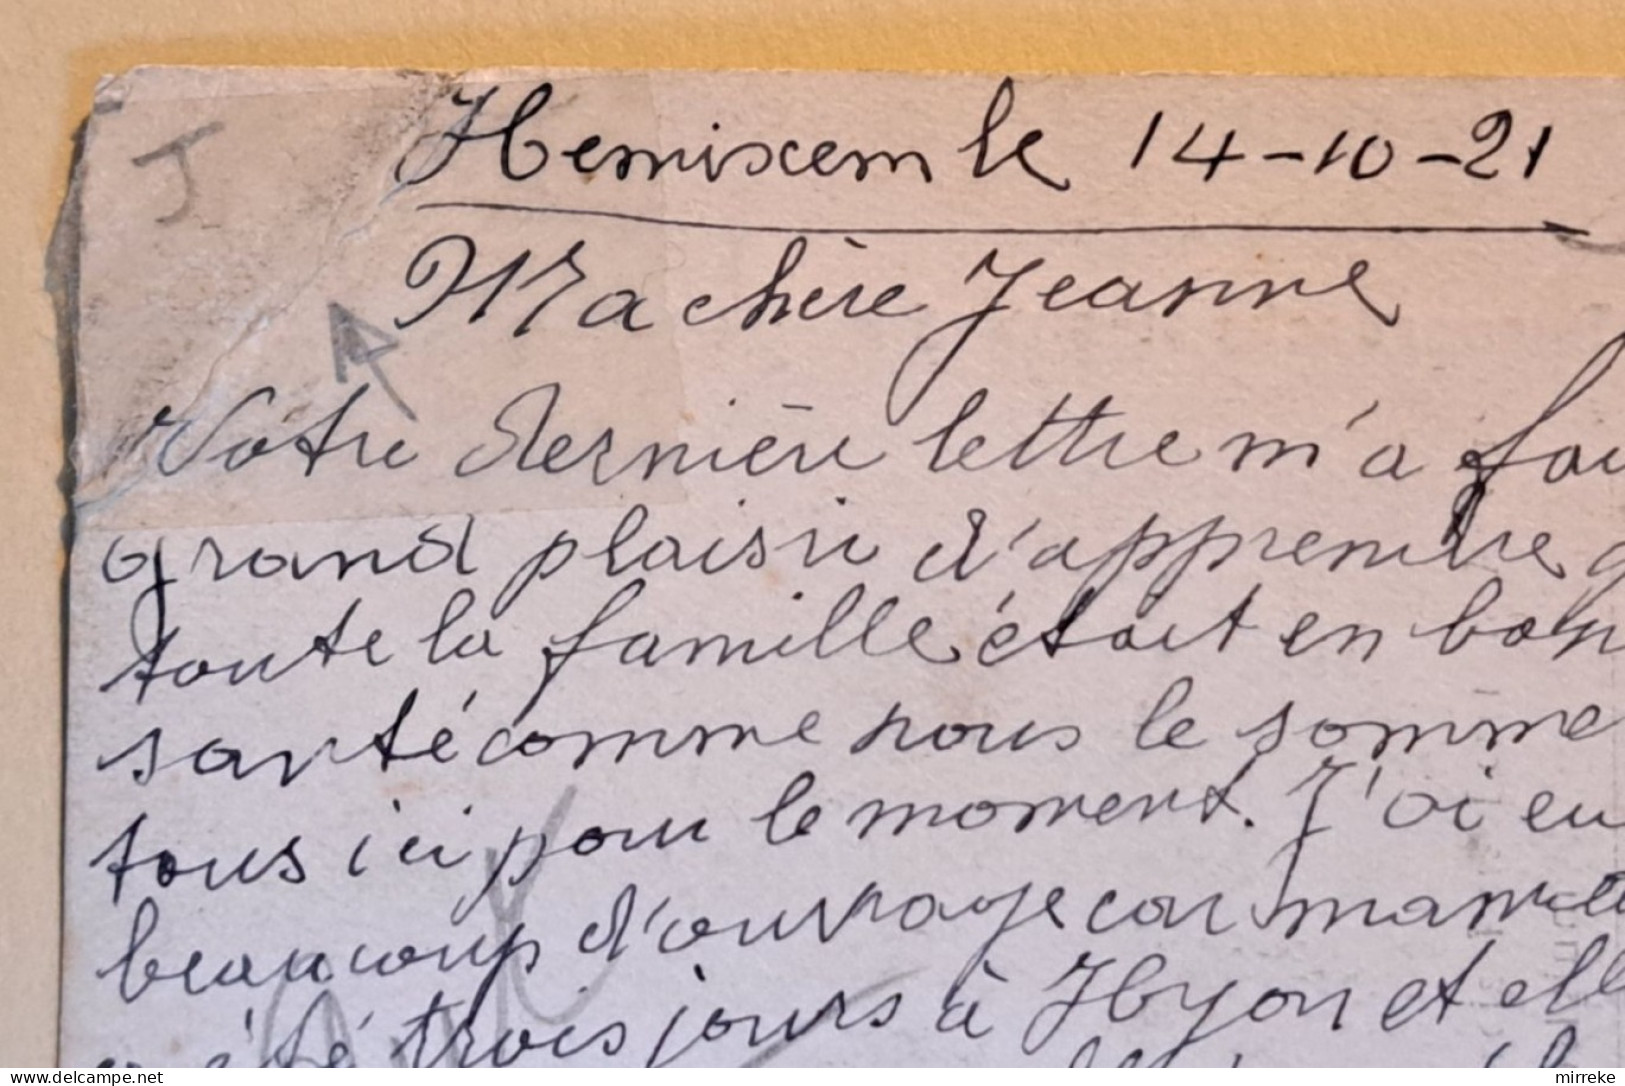 J
Hemixem le 14-10-21
Ma chère Jeanne
Votre dernière lettre m'a fai
grand plaisir d'apprendre q
toute la famille était en bonn
santé comme nous le somme
tous ici pour le moment. J'ai eu
beaucoup d'ouvrage car maman
a été trois jours à Hyon et elle
© delcampe.net
mirreke